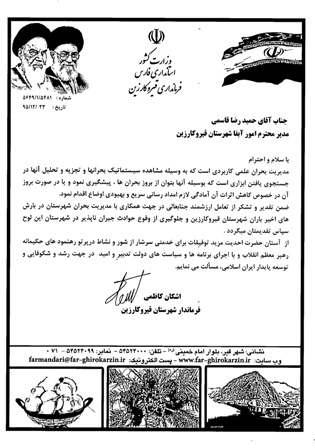 وزارت کشور
استانداری فارس
فرمانداری قیروکارزین
شماره : ۵۶۲۹/۱/۵۴۸۱
تاریخ : ۹۵/۱۲/۲۳
جناب آقای حمید رضا قاسمی
مدیر محترم امور آبفا شهرستان قیروکارزین
با سلام و احترام
مدیریت بحران علمی کاربردی است که به وسیله مشاهده سیستماتیک بحرانها و تجزیه و تحلیل آنها در
جستجوی یافتن ابزاری است که بوسیله آنها بتوان از بروز بحران ها ، پیشگیری نمود و یا در صورت بروز
آن در خصوص کاهش اثرات آن آمادگی لازم امداد رسانی سریع و بهبودی اوضاع اقدام نمود.
ضمن تقدیر و تشکر از تعامل ارزشمند جنابعالی در جهت همکاری با مدیریت بحران شهرستان در بارش
های اخیر باران شهرستان قیروکارزین و جلوگیری از وقوع حوادث جبران ناپذیر در شهرستان این لوح
سپاس تقدیمتان میگردد .
از آستان حضرت احدیت مزید توفیقات برای خدمتی سرشار از شور و نشاط درپرتو رهنمود های حکیمانه
رهبر معظم انقلاب و با اجرای برنامه ها و سیاست های دولت تدبیر و امید در جهت رشد و شکوفایی و
توسعه پایدار ایران اسلامی، مسألت می نمایم.
اشکان کاظمی
فرماندار شهرستان قیروکارزین
نشانی: شهر قیر، بلوار امام خمینی - تلفن: ۵۴۵۲۴۰۰۰ - نمابر: ۵۴۵۲۳۰۹۹ - ۰۷۱
وب سایت: www.far-ghirokarzin.ir - پست الکترونیک: farmandari@far-ghirokarzin.ir